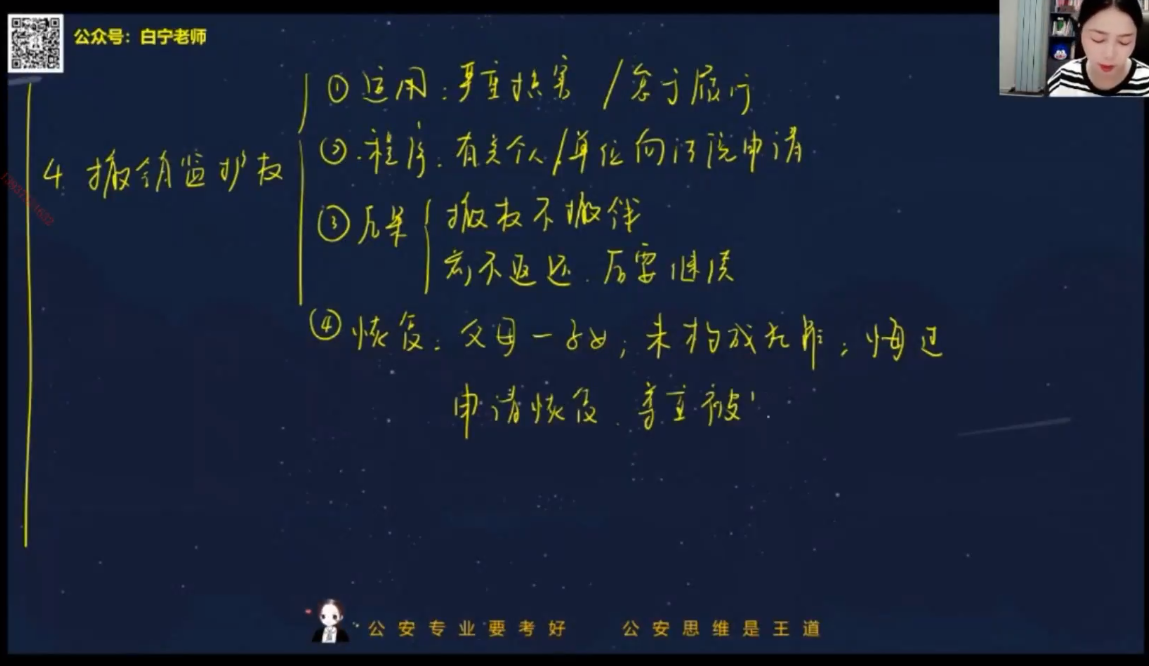 公众号：白宁老师
4 撤销监护权
① 适用：严重损害 / 怠于履行
②. 程序. 有关个人/单位向法院申请
③ 后果 撤权不撤伴
前不返还. 后要继续
④ 恢复: 父母一子女; 未构成犯罪; 悔过
申请恢复 尊重被
公安专业要考好 公安思维是王道